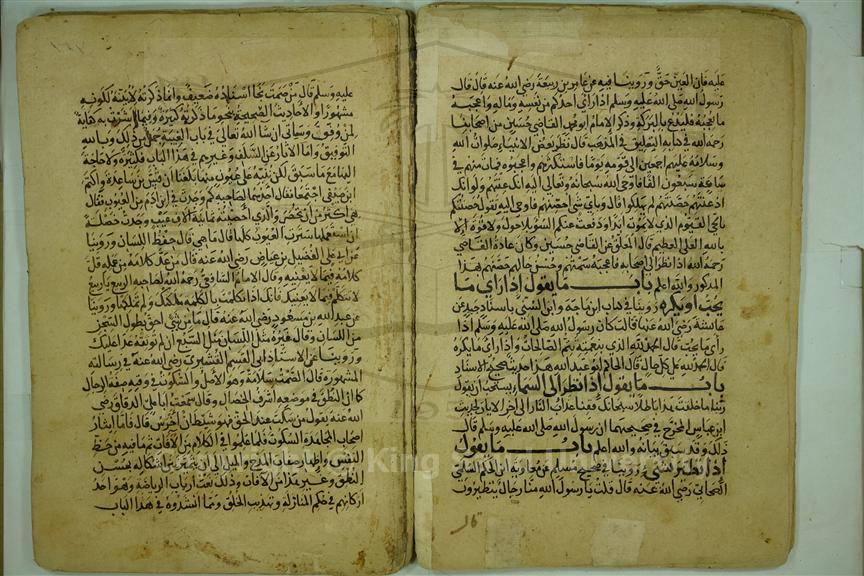 عليه فان العين حق وروينا فيه عن عامر بن ربيعة رضي الله عنه قال قال
رسول الله صلى الله عليه وسلم اذا رأى احدكم من نفسه وماله واعجبه
ما يعجبه فليدع بالبركة وذكر الامام ابو محمد القاضي حسين من اصحابنا
رحمه الله في كتابه التعليق في المذهب قال نظر بعض الانبياء صلوات الله
وسلامه عليهم اجمعين الى قومه يوما فاستكثرهم واعجبوه فمات منهم في
ساعة سبعون الفا فاوحى الله سبحانه وتعالى اليه انك عنتهم ولو انك
اذ عنتهم حصنتهم لم يهلكوا قال وباي شي احصنهم فاوحى اليه تقول حصنتكم
بالحي القيوم الذي لا يموت ابدا ودفعت عنكم السوء بلا حول ولا قوة الا
بالله العلي العظيم قال المعلق عن القاضي حسين وكان عادة القاضي
رحمه الله اذا نظر الى اصحابه فاعجبه سمتهم وحسن حالهم حصنهم بهذا
المذكور والله اعلم باب ما يقول اذا رأى ما
يحب او يكره روينا في كتاب ابن ماجة وابن السني باسناد جيد عن
عائشة رضي الله عنها قالت كان رسول الله صلى الله عليه وسلم اذا
رأى ما يحب قال الحمد لله الذي بنعمته تتم الصالحات واذا رأى ما يكره
قال الحمد لله على كل حال قال الحاكم ابو عبد الله هذا حديث صحيح الاسناد
باب ما يقول اذا نظر الى السماء يستحب ان يقول
ربنا ما خلقت هذا باطلا سبحانك فقنا عذاب النار الى اخر الايات لحديث
ابن عباس المخرج في صحيحيهما ان رسول الله صلى الله عليه وسلم قال
ذلك وقد سبق بيانه والله اعلم باب ما يقول
اذا تطير بشي روينا في صحيح مسلم عن معاوية ابن الحكم السلمي
الصحابي رضي الله عنه قال قلت يا رسول الله منا رجال يتطيرون
عليه وسلم قال من صمت نجا اسناده ضعيف وانما ذكرته لابينه لكونه
مشهورا والاحاديث الصحيحة بنحو ما ذكرته كثيرة وفيما اشرت به كفاية
لمن وفق وسياتي ان شا الله تعالى في باب الغيبة جمل من ذلك وبالله
التوفيق واما الاثار عن السلف وغيرهم في هذا الباب فكثيرة ولا حاجة
اليها مع ما سبق لكن ننبه على عيون منها بلغنا ان قس بن ساعدة واكثم
ابن صيفي اجتمعا فقال احدهما لصاحبه كم وجدت في ابن ادم من العيوب فقال
هي اكثر من ان تحصر والذي احصيته ثمانية الاف عيب ووجدت خصلة
ان استعملها سترت العيوب كلها قال ما هي قال حفظ اللسان وروينا
عن ابي علي الفضيل بن عياض رضي الله عنه قال من عد كلامه من عمله قل
كلامه فيما لا يعنيه وقال الامام الشافعي رحمه الله لصاحبه الربيع يا ربيع
لا تتكلم فيما لا يعنيك فانك اذا تكلمت بالكلمة ملكتك ولم تملكها وروينا
عن عبد الله بن مسعود رضي الله عنه قال ما من شي احق بطول السجن
من اللسان وقال غيره مثل اللسان مثل السبع ان لم توثقه عدا عليك
وروينا عن الاستاذ ابي القسم القشيري رضي الله عنه في رسالته
المشهورة قال الصمت سلامة وهو الاصل والسكوت في وقته صفة الرجال
كما ان النطق في موضعه اشرف الخصال وقال سمعت ابا علي الدقاق رضي
الله عنه يقول من سكت عند الحق فهو شيطان اخرس قال فاما ايثار
اصحاب المجاهدة السكوت فلما علموا في الكلام من الافات ثم ما فيه من حظ
النفس واظهار صفات المدح والميل الى ان يتميز بين اشكاله بحسن
النطق وغير هذا من الافات وذلك نعت ارباب الرياضة وهو احد
اركانهم في حكم المنازلة وتهذيب الخلق ومما انشدوه في هذا الباب